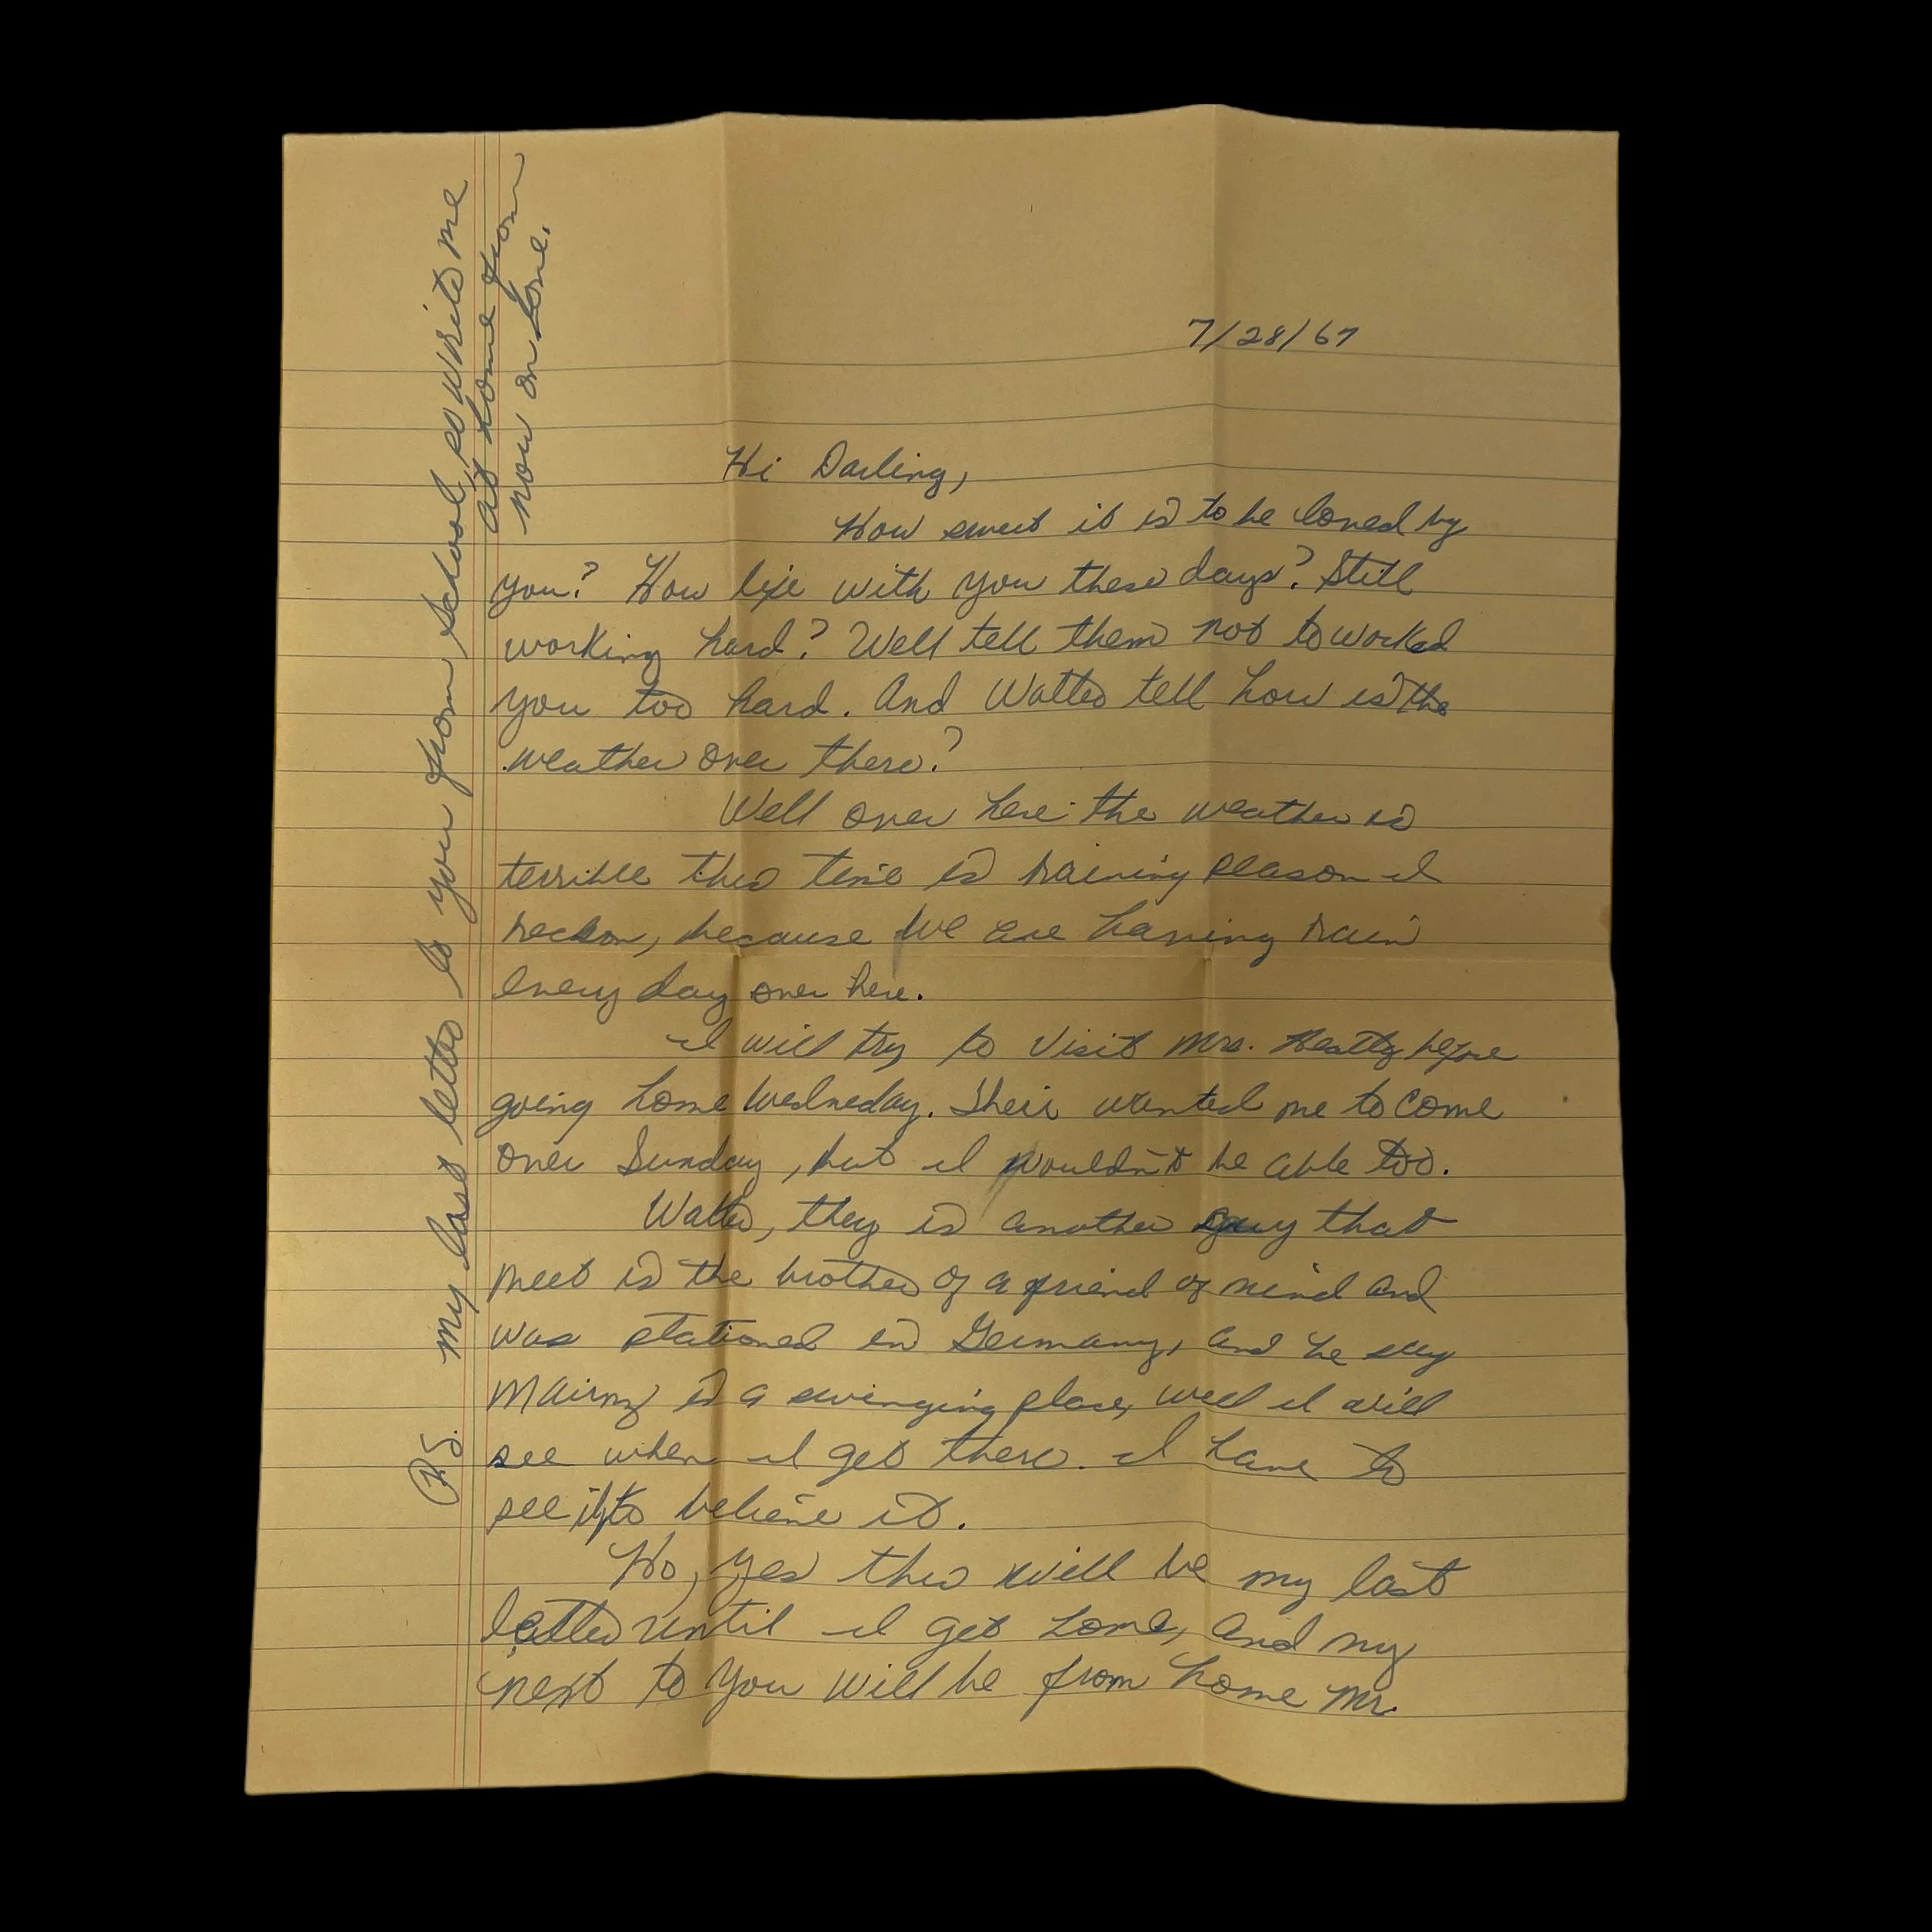 7/28/67
Hi Darling,
How sweet it is to be loved by
you? How life with you these days? Still
working hard? Well tell them not to worked
you too hard. And Walter tell how is the
weather over there?
Well over here the weather is
terrible this time is raining season I
reckon, because we are having rain
every day over here.
I will try to visit Mrs. before
going home Wedneday. Their wanted me to come
over Sunday, but I wouldn't be able too.
Walter, they is another guy that
meet is the brother of a friend of mind and
was stationed in Germany, and he say
is a swinging place, well I will
see when I get there. I have to
see it to believe it.
Ho, yes this will be my last
letter until I get home, and my
next to you will be from home Mr.
P.S. my last letter to you from school, so write me
at home from
now on love.